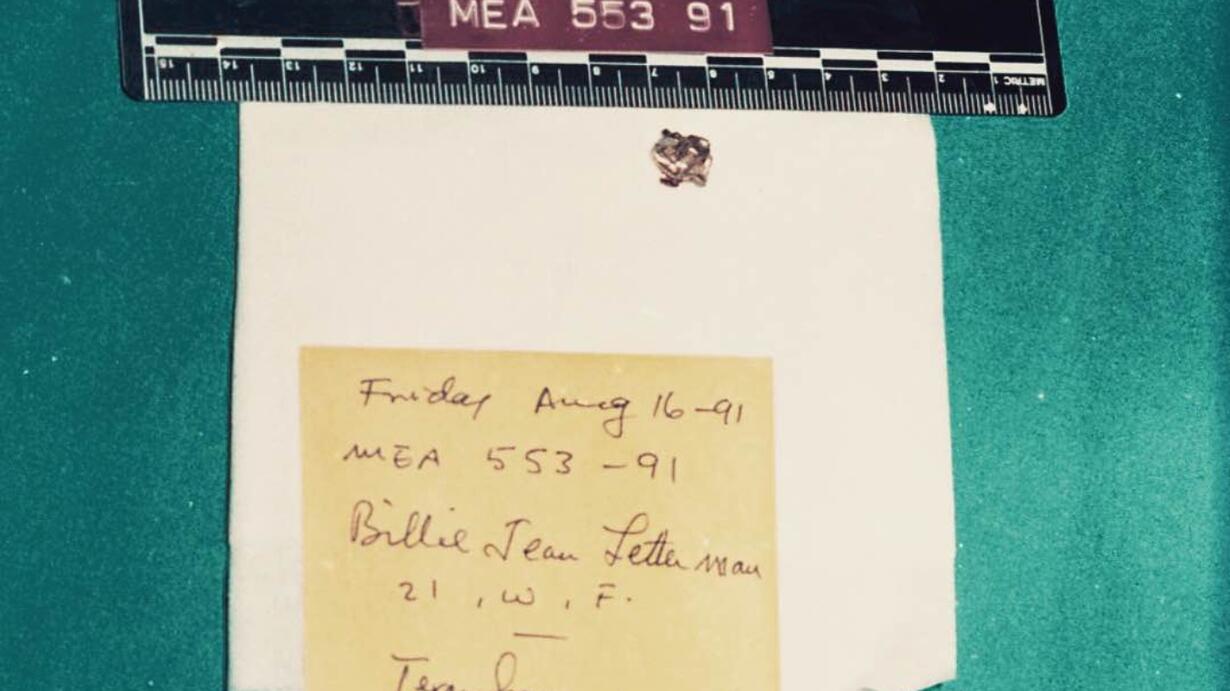 MEA 553 91
15 14 13 12 11 10 9 8 7 6 5 4 3 2 1 METRIC
Friday Aug 16-91
MEA 553-91
Billie Jean Letterman
21, W, F.